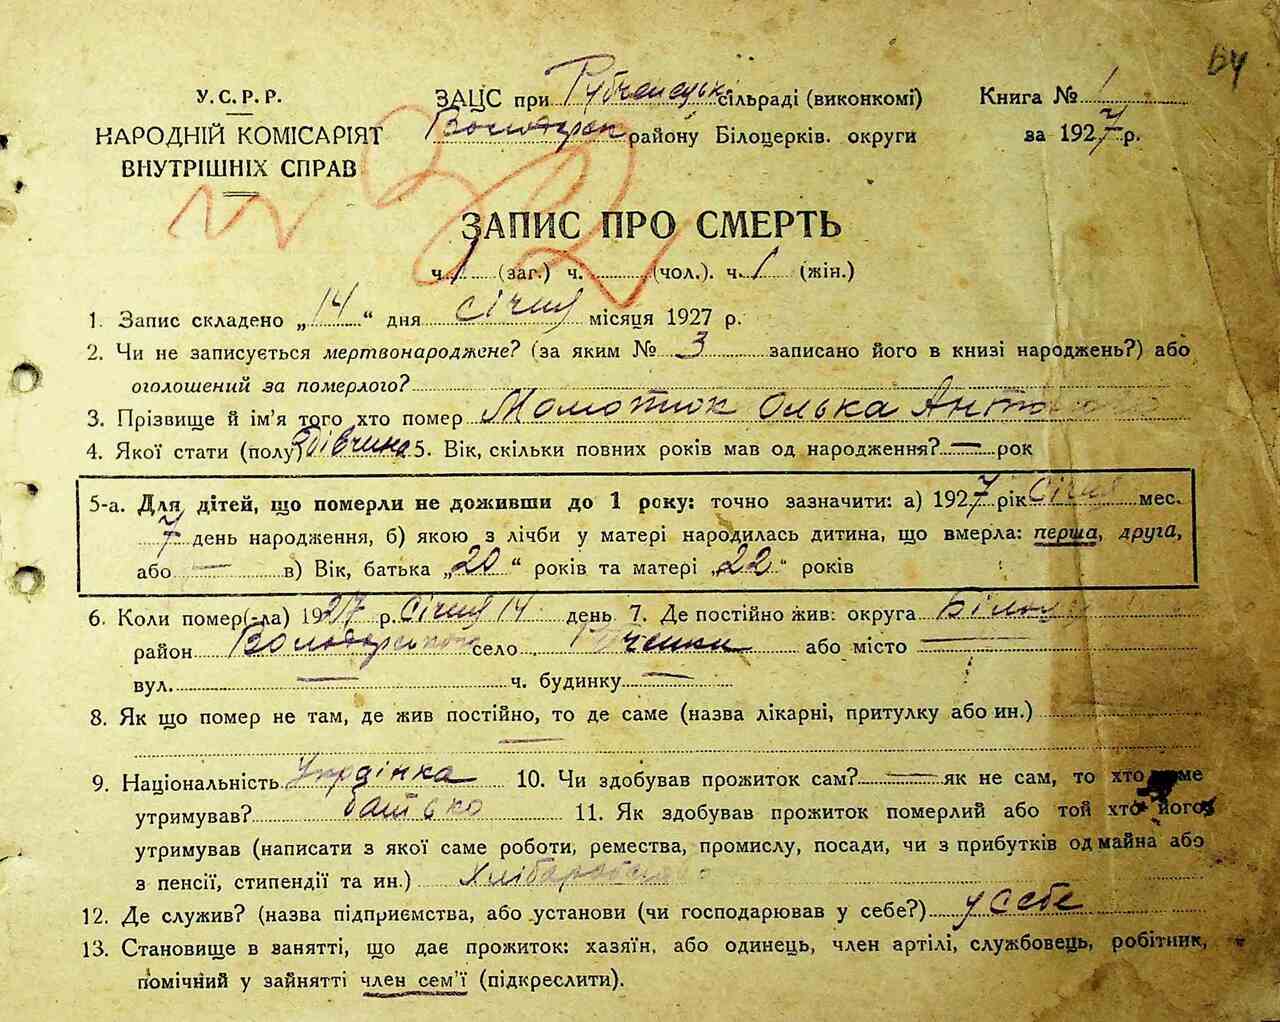 64
У.С.Р.Р.
НАРОДНІЙ КОМІСАРІЯТ
ВНУТРІШНІХ СПРАВ
ЗАЦС при Рубченецькі сільраді (виконкомі)
району Білоцерків. округи
Книга № 1
за 1927 р.
ЗАПИС ПРО СМЕРТЬ
ч. 1 (заг.) ч. (чол.). ч. 1 (жін.)
1. Запис складено „14“ дня січня місяця 1927 р.
2. Чи не записується мертвонароджене? (за яким № 3 записано його в книзі народжень?) або
оголошений за померлого?
3. Прізвище й ім'я того хто помер Момотюк Олька
4. Якої стати (полу) дівчина 5. Вік, скільки повних років мав од народження? — рок
5-а. Для дітей, що померли не доживши до 1 року: точно зазначити: а) 1927 рік Січня мес.
7 день народження, б) якою з лічби у матері народилась дитина, що вмерла: перша, друга,
або — в) Вік, батька „20“ років та матері „22“ років
6. Коли помер(-ла) 1927 р. січня 14 день 7. Де постійно жив: округа
район село Рубченки або місто —
вул. — ч. будинку —
8. Як що помер не там, де жив постійно, то де саме (назва лікарні, притулку або ин.)
—
9. Національність Українка 10. Чи здобував прожиток сам? — як не сам, то хто
утримував? батько 11. Як здобував прожиток померлий або той хто його
утримував (написати з якої саме роботи, ремества, промислу, посади, чи з прибутків од майна або
з пенсії, стипендії та ин.) Хліборобство
12. Де служив? (назва підприємства, або установи (чи господарював у себе?) у себе
13. Становище в занятті, що дає прожиток: хазяїн, або одинець, член артілі, службовець, робітник,
помічний у зайнятті член сем'ї (підкреслити).